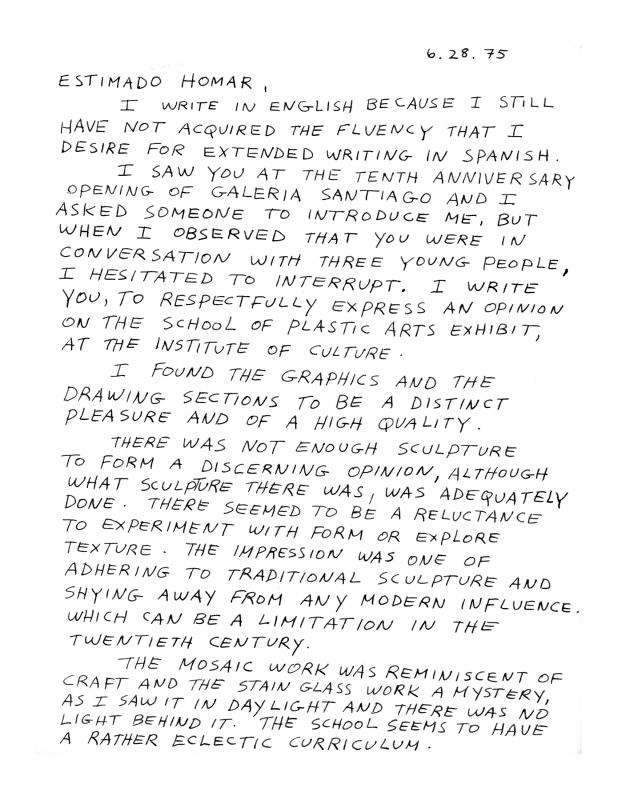 6.28.75
ESTIMADO HOMAR,
I WRITE IN ENGLISH BECAUSE I STILL
HAVE NOT ACQUIRED THE FLUENCY THAT I
DESIRE FOR EXTENDED WRITING IN SPANISH.
I SAW YOU AT THE TENTH ANNIVERSARY
OPENING OF GALERIA SANTIAGO AND I
ASKED SOMEONE TO INTRODUCE ME, BUT
WHEN I OBSERVED THAT YOU WERE IN
CONVERSATION WITH THREE YOUNG PEOPLE,
I HESITATED TO INTERRUPT. I WRITE
YOU, TO RESPECTFULLY EXPRESS AN OPINION
ON THE SCHOOL OF PLASTIC ARTS EXHIBIT,
AT THE INSTITUTE OF CULTURE.
I FOUND THE GRAPHICS AND THE
DRAWING SECTIONS TO BE A DISTINCT
PLEASURE AND OF A HIGH QUALITY.
THERE WAS NOT ENOUGH SCULPTURE
TO FORM A DISCERNING OPINION, ALTHOUGH
WHAT SCULPTURE THERE WAS, WAS ADEQUATELY
DONE. THERE SEEMED TO BE A RELUCTANCE
TO EXPERIMENT WITH FORM OR EXPLORE
TEXTURE. THE IMPRESSION WAS ONE OF
ADHERING TO TRADITIONAL SCULPTURE AND
SHYING AWAY FROM ANY MODERN INFLUENCE.
WHICH CAN BE A LIMITATION IN THE
TWENTIETH CENTURY.
THE MOSAIC WORK WAS REMINISCENT OF
CRAFT AND THE STAIN GLASS WORK A MYSTERY,
AS I SAW IT IN DAYLIGHT AND THERE WAS NO
LIGHT BEHIND IT. THE SCHOOL SEEMS TO HAVE
A RATHER ECLECTIC CURRICULUM.